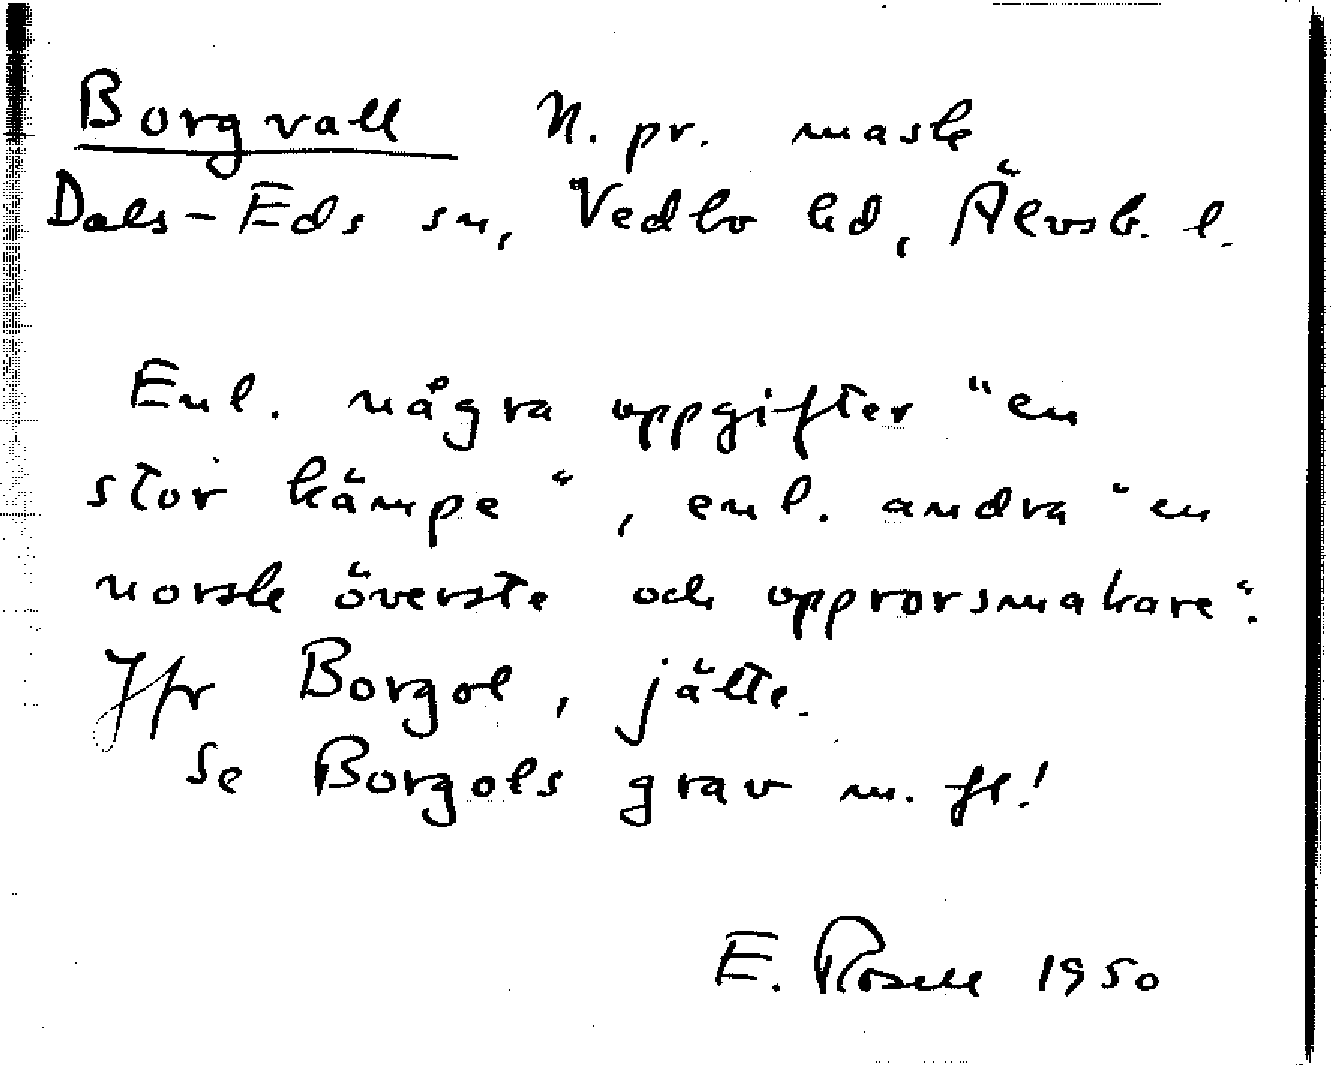 Borgvall N. pr. mask
Dals-Eds sn, Vedbo hd, Älvsb. l.
Enl. några uppgifter "en
stor kämpe", enl. andra "en
norsk överste och upprorsmakare".
Jfr Borgol, jätte.
Se Borgols grav m. fl.!
E. Rosell 1950